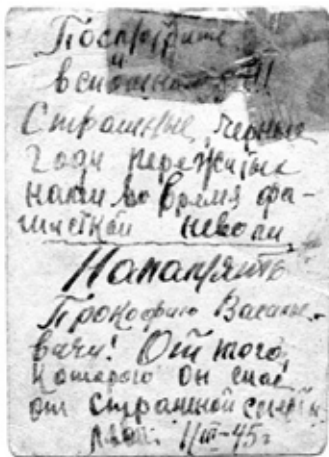 Посмотрите
и
вспомните!!
Страшные, черные
годы пережитые
нами во время фа-
шисткой неволи
На память
Прокофию Василь-
вичу! От того,
которого он спас
от страшной смерти
III-45г